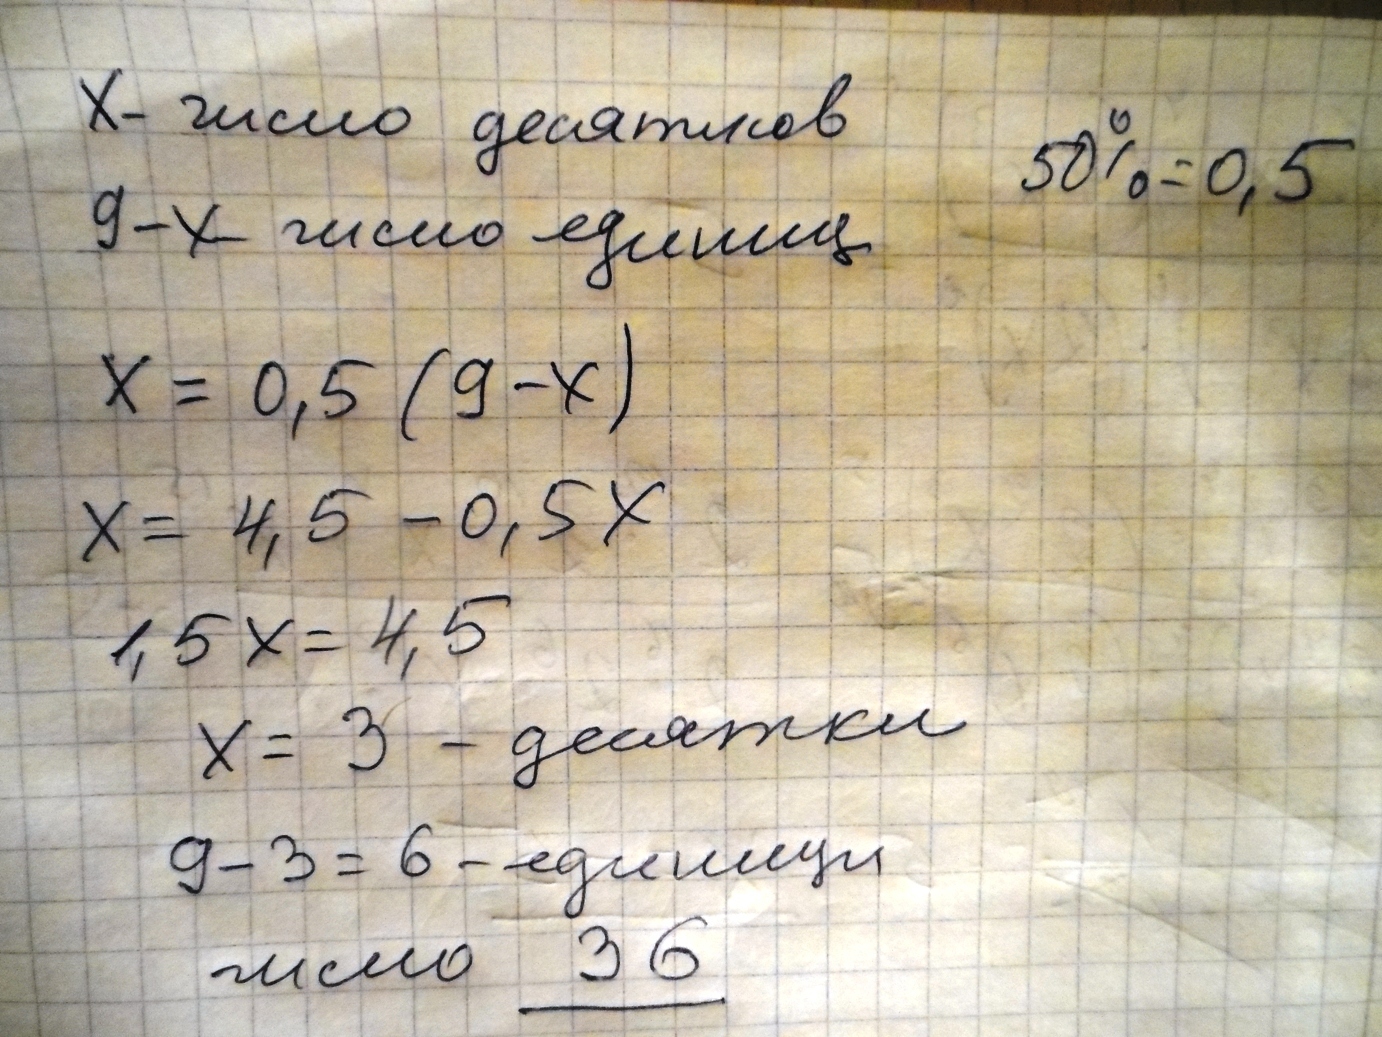 х- число десятков
50%=0,5
9-х- число единиц
х = 0,5 (9-х)
х = 4,5 - 0,5х
1,5х = 4,5
х = 3 - десятки
9-3=6- единицы
число 36